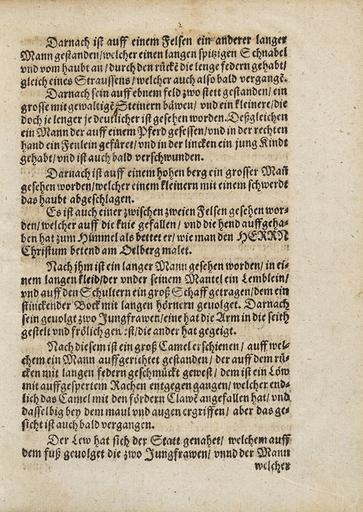 Darnach ist auff einem Felsen ein anderer langer
Mann gestanden/welcher einen langen spitzigen Schnabel
vnd vom haubt an/durch den rücke die lenge federn gehabt/
gleich eines Straussens/welcher auch alsobald vergangẽ.
Darnach sein auff ebnem feld zwo stett gestanden/ein
grosse mit gewaltigẽ Steinern bäwen/vnd ein kleinere/die
doch je lenger je deutlicher ist gesehen worden. Deßgleichen
ein Mann der auff einem Pferd gesessen/vnd in der rechten
hand ein Fenlein gefüret/vnd in der lincken ein jung Kindt
gehabt/vnd ist auch bald verschwunden.
Darnach ist auff einem hohen berg ein grosser Mañ
gesehen worden/welcher einem kleinern mit einem schwerdt
das haubt abgeschlagen.
Es ist auch einer zwischen zweien Felsen gesehen wor-
den/welcher auff die knie gefallen/vnd die hend auffgeha-
ben hat zum Himmel als bettet er/wie man den HERRN
Christum betend am Oelberg malet.
Nach jhm ist ein langer Mann gesehen worden/in ei-
nem langen kleid/der vnder seinem Mantel ein Lemblein/
vnd auff den Schultern ein groß Schaff getragen/dem ein
stinckender Bock mit langen hörnern geuolget. Darnach
sein geuolget zwo Jungfrawen/eine hat die Arm in die seith
gestelt vnd frölich ge /die ander hat gegeiget.
Nach diesem ist ein groß Camel erschienen/auff wel-
chem ein Mann auffgerichtet gestanden/der auff dem rü-
cken mit langen federn geschmückt gewest/dem ist ein Löw
mit auffgespertem Rachen entgegen gangen/welcher end-
lich das Camel mit den fördern Clawẽ angefallen hat/vnd
dasselbig bey dem maul vnd augen ergriffen/aber das ge-
sicht ist auch bald vergangen.
Der Lew hat sich der Statt genahet/welchem auff
dem fuß geuolget die zwo Jungfrawen/vnnd der Mann
welcher